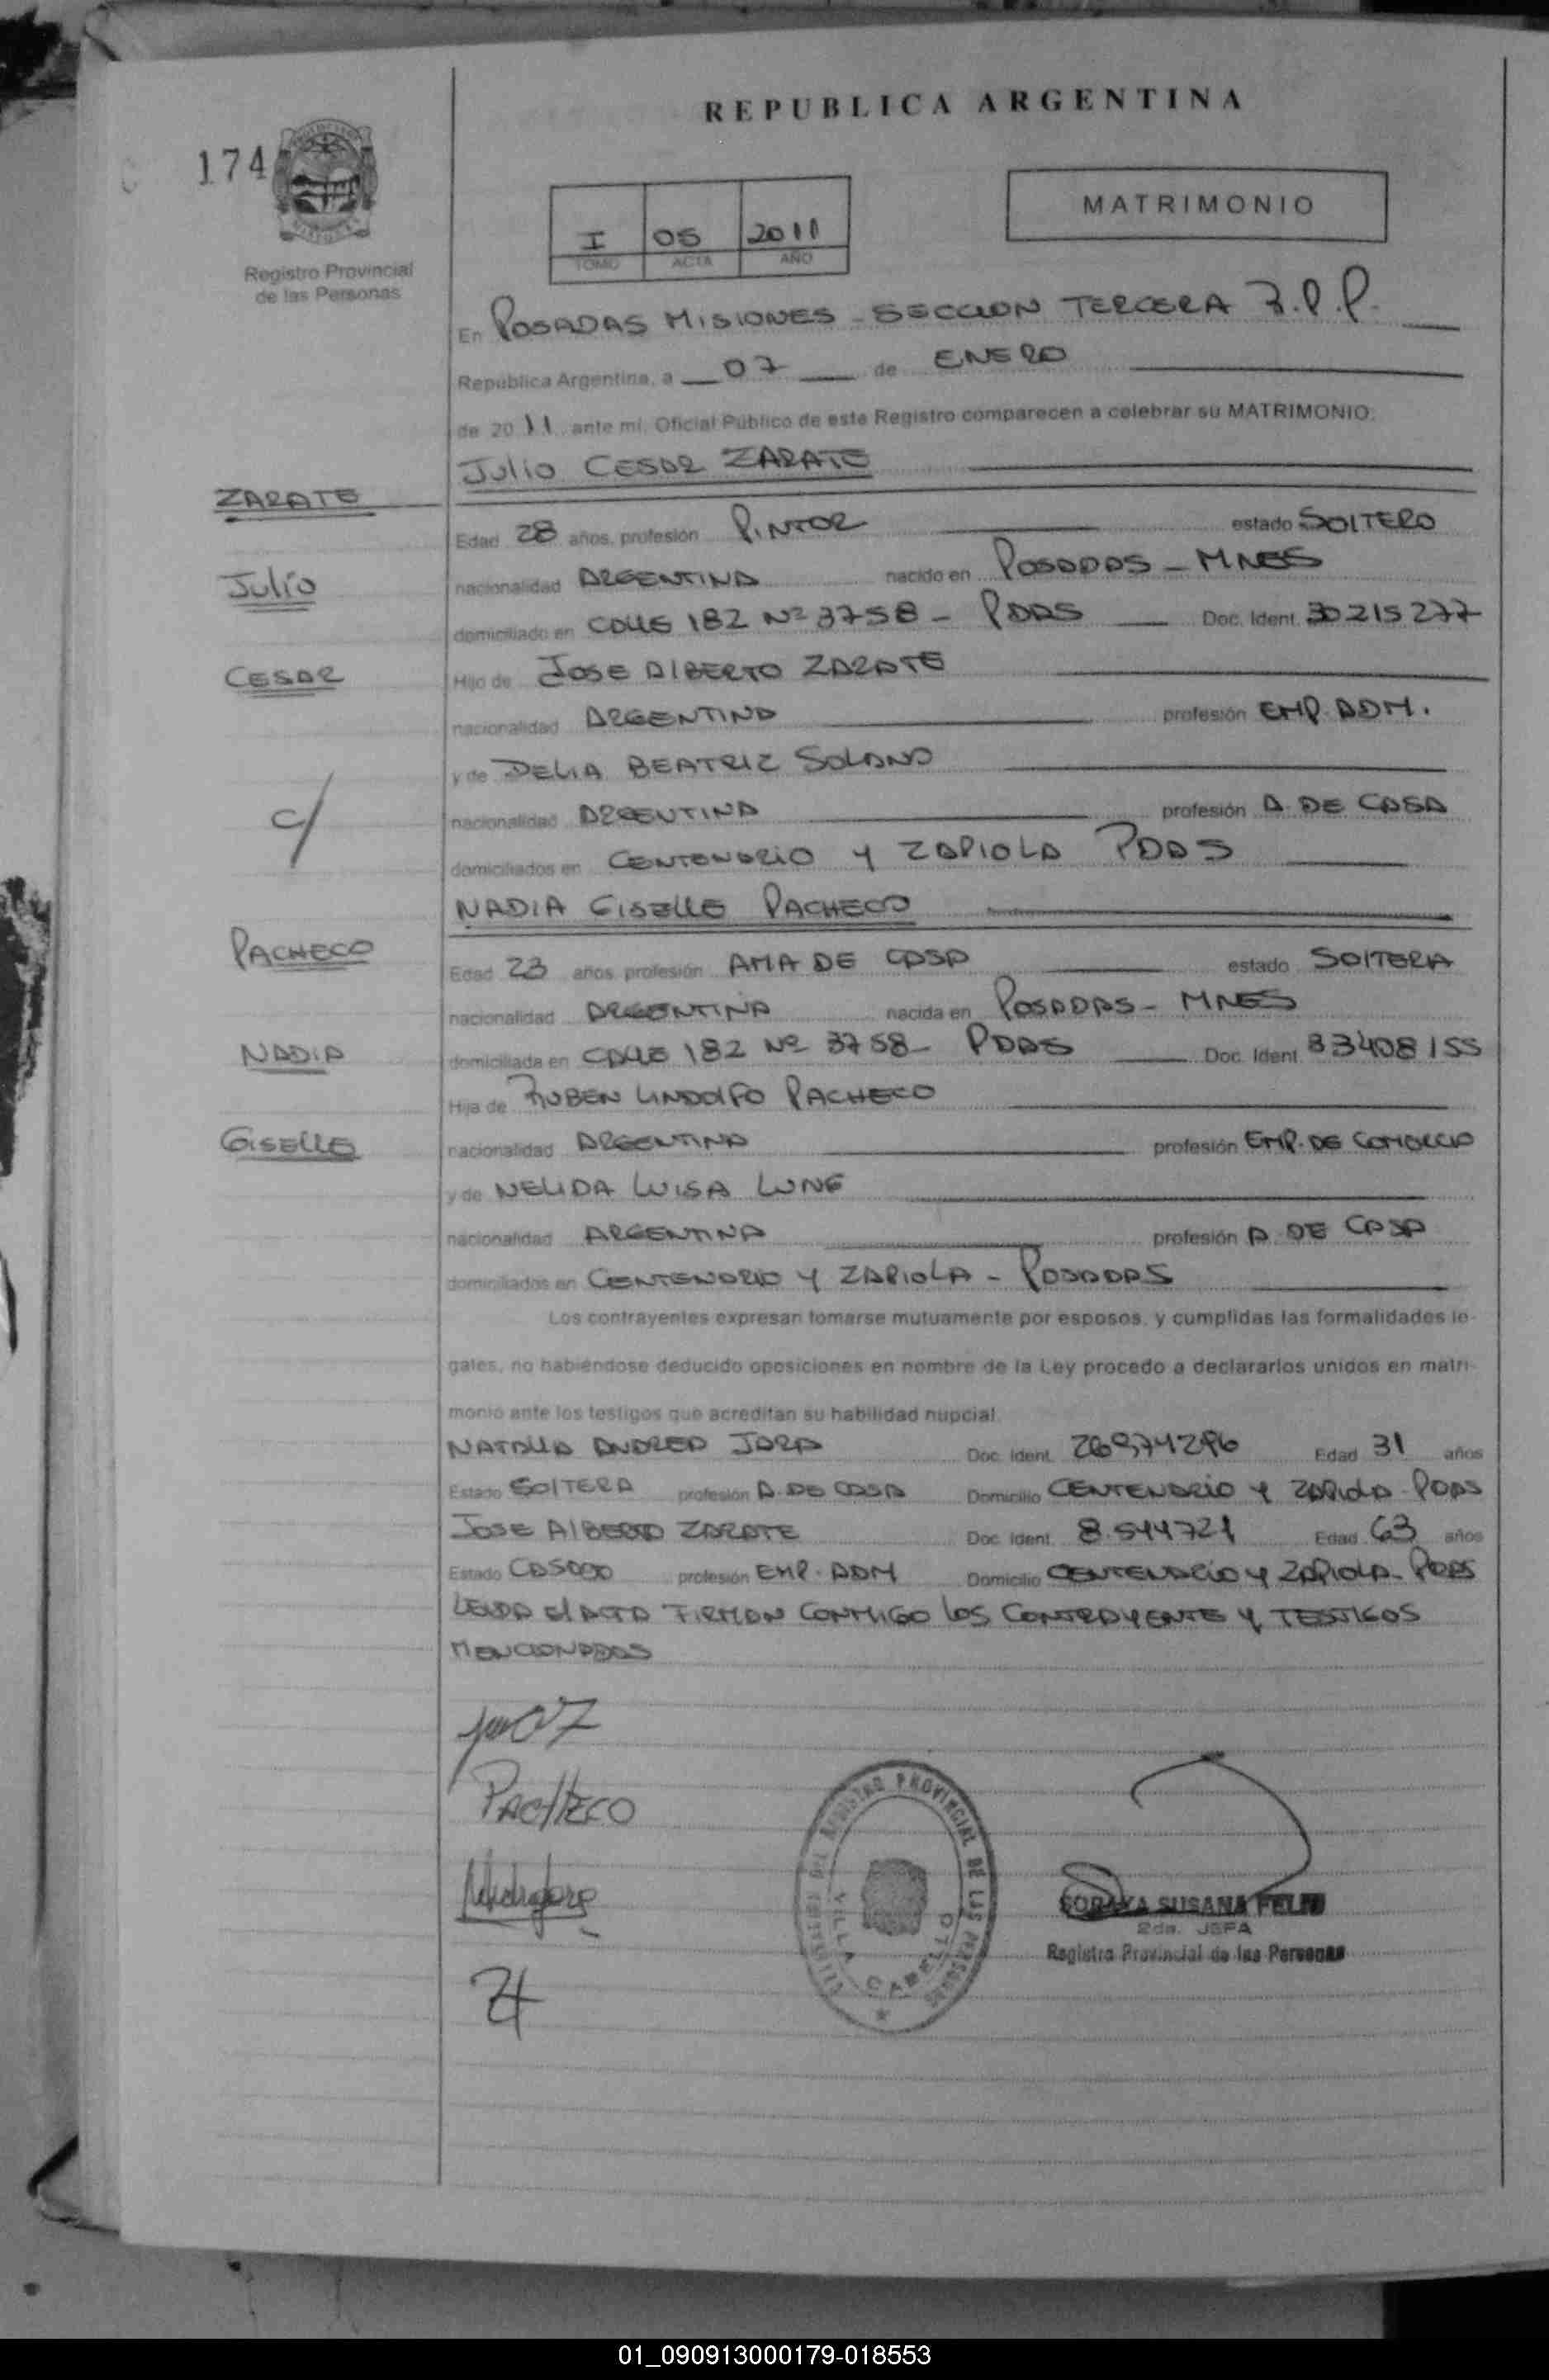 REPUBLICA ARGENTINA
174
MATRIMONIO
I 05 2011
TOMO ACTA AÑO
Registro Provincial
de las Personas
En POSADAS MISIONES - SECCION TERCERA R.P.P.
República Argentina, a 07 de ENERO
de 2011 ante mi, Oficial Público de este Registro comparecen a celebrar su MATRIMONIO:
Julio CESAR ZARATE
ZARATE
Edad 28 años, profesión PINTOR estado SOLTERO
Julio
nacionalidad ARGENTINA nacido en POSADAS - MNES
domiciliado en CALLE 182 Nº 3758 - PDAS Doc. Ident. 30215277
CESAR
Hijo de JOSE ALBERTO ZARATE
nacionalidad ARGENTINA profesión EMP. ADM.
y de DELIA BEATRIZ SOLANO
c/
nacionalidad ARGENTINA profesión A. DE CASA
domiciliados en CENTENARIO Y ZAPIOLA PDAS
NADIA GISELLE PACHECO
PACHECO
Edad 23 años profesión AMA DE CASA estado SOLTERA
nacionalidad ARGENTINA nacida en POSADAS - MNES
NADIA
domiciliada en CALLE 182 Nº 3758 - PDAS Doc. Ident. 33408155
Hija de RUBEN LINDOLFO PACHECO
GISELLE
nacionalidad ARGENTINA profesión EMP. DE COMERCIO
y de NELIDA LUISA LUNE
nacionalidad ARGENTINA profesión A. DE CASA
domiciliados en CENTENARIO Y ZAPIOLA - POSADAS
Los contrayentes expresan tomarse mutuamente por esposos, y cumplidas las formalidades le-
gales, no habiéndose deducido oposiciones en nombre de la Ley procedo a declararlos unidos en matri-
monio ante los testigos que acreditan su habilidad nupcial.
NATALIA ANDREA JARA Doc. Ident. Edad 31 años
Estado SOLTERA profesión A. DE CASA Domicilio CENTENARIO Y ZAPIOLA - PDAS
JOSE ALBERTO ZARATE Doc. Ident. 8.544721 Edad 63 años
Estado CASADO profesión EMP. ADM Domicilio CENTENARIO Y ZAPIOLA - PDAS
LEIDA El ACTA FIRMAN CONMIGO LOS CONTRAYENTE Y TESTIGOS
MENCIONADAS
PACHECO
REGISTRO PROVINCIAL DE LAS PERSONAS
VILLA CABELLO
SORAYA SUSANA
2da. JEFA
Registro Provincial de las Personas
01_090913000179-018553